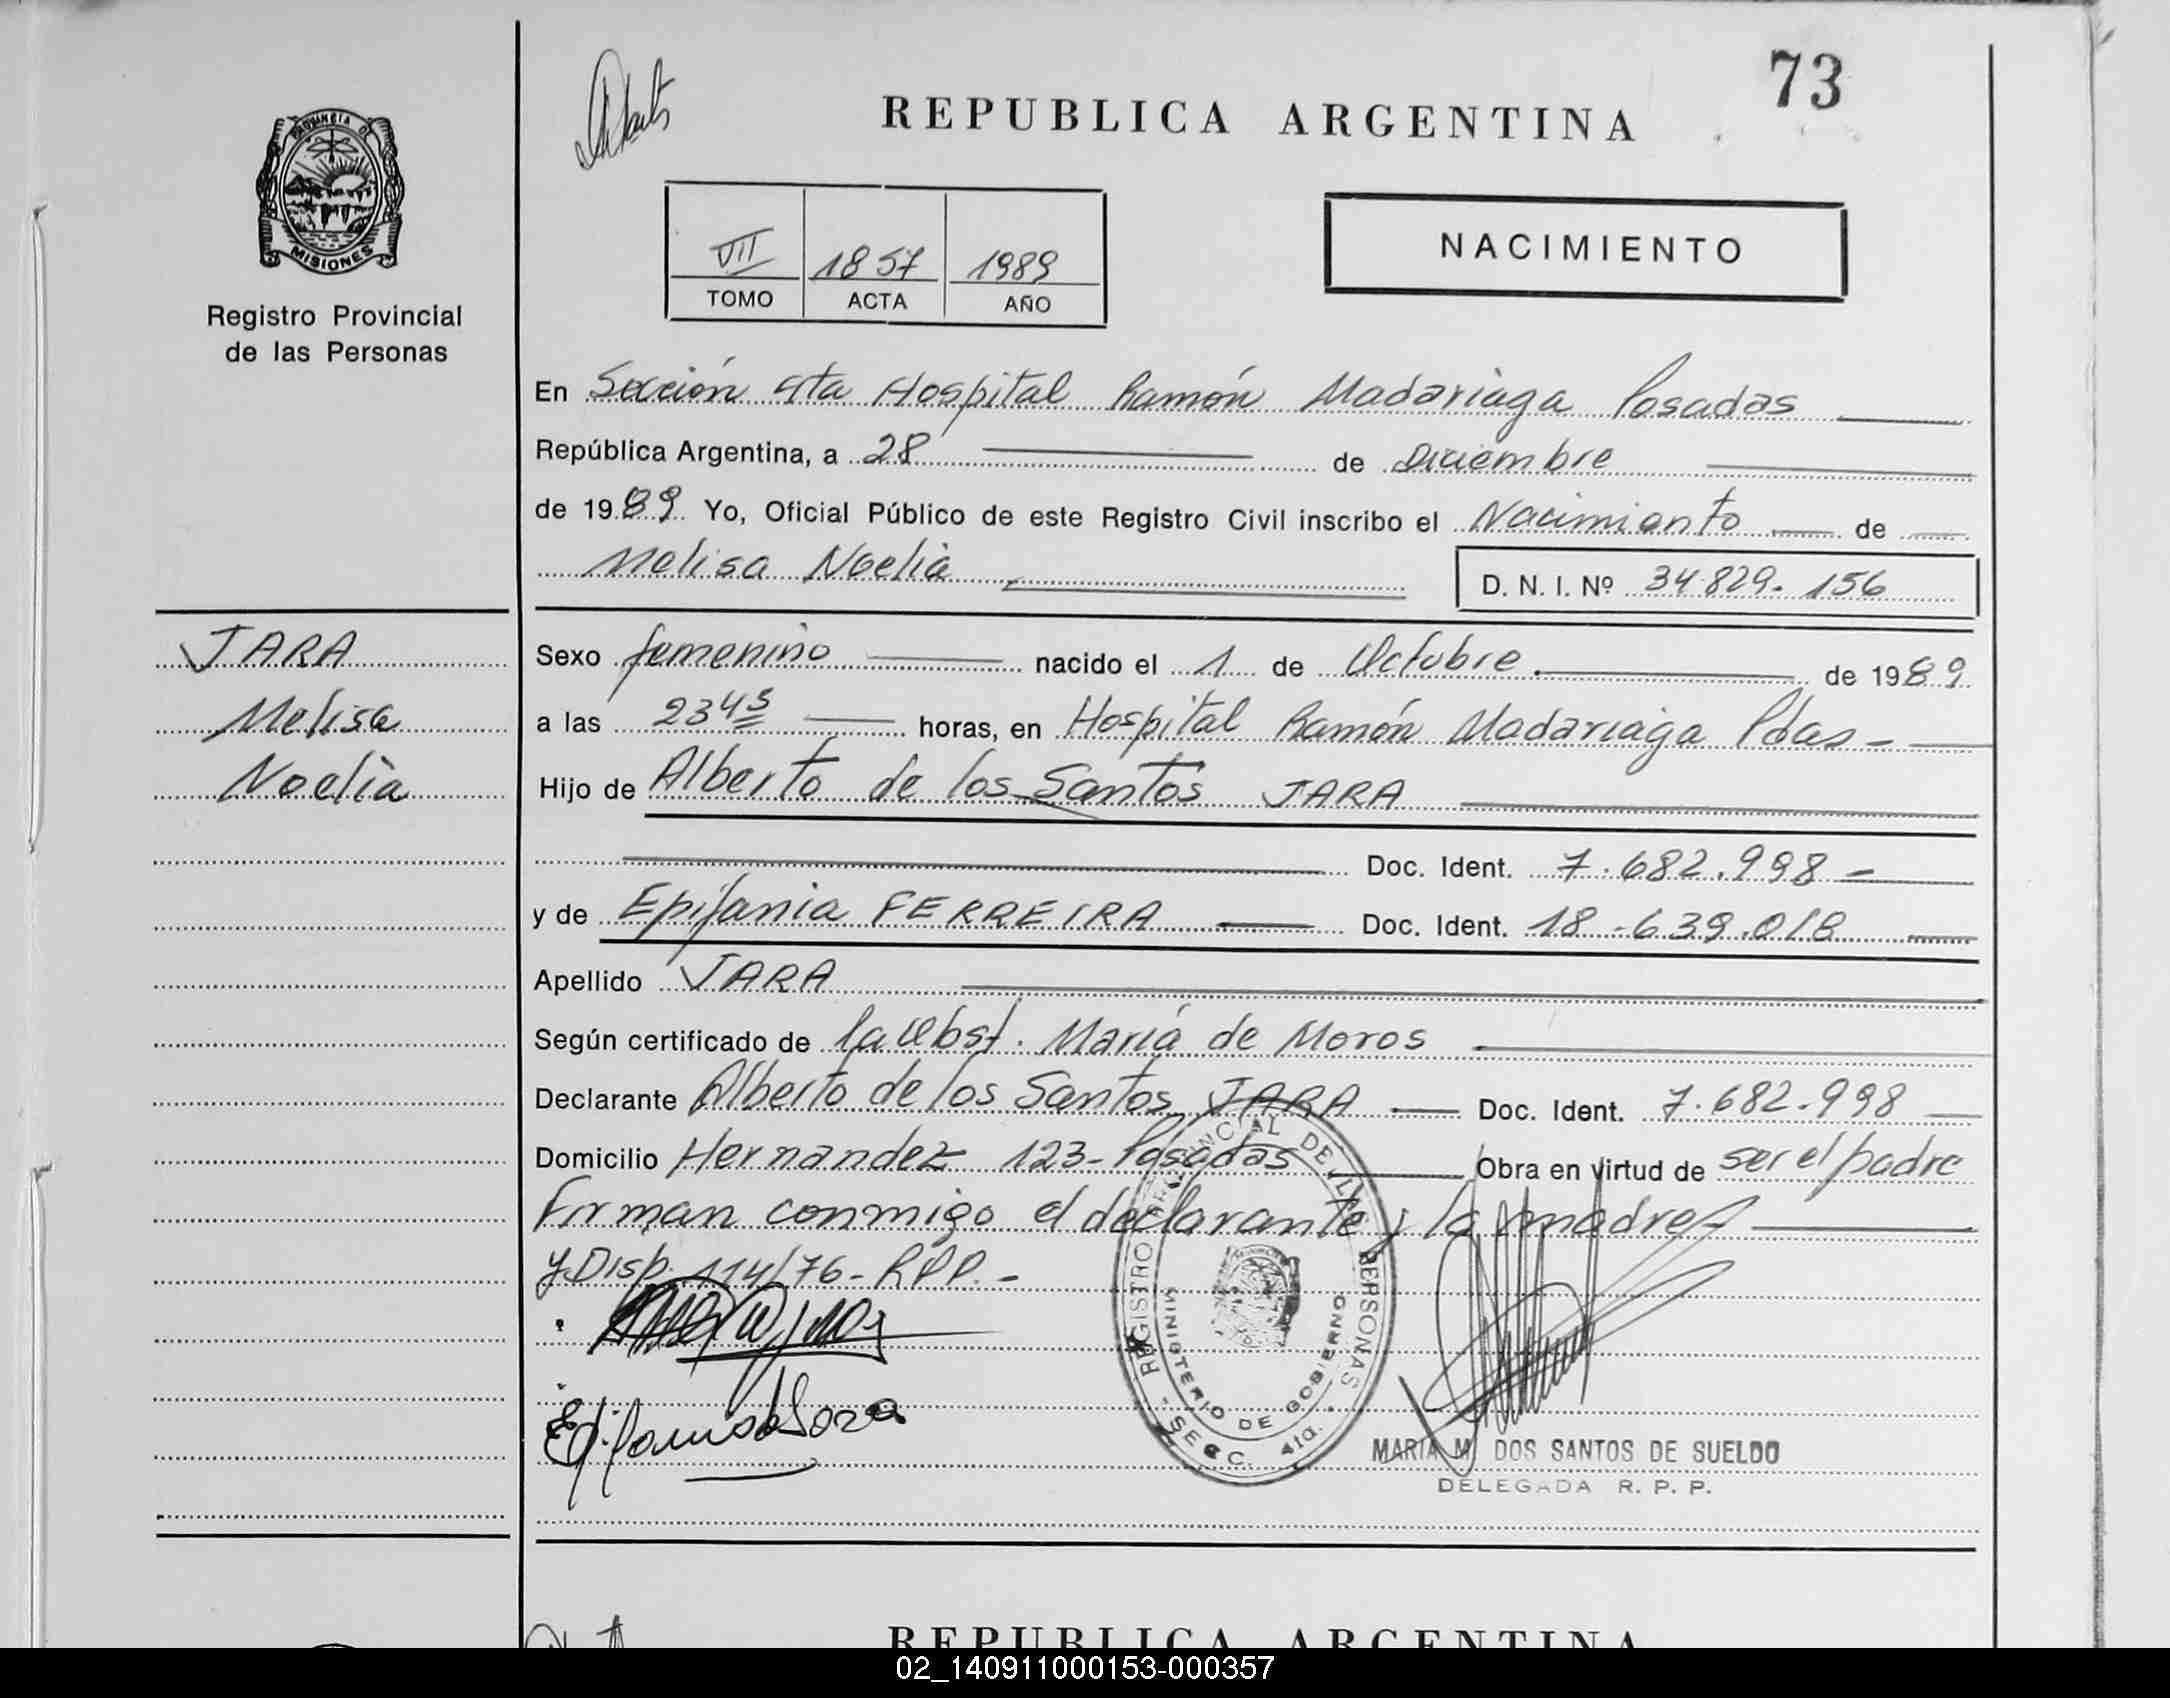 73
REPUBLICA ARGENTINA
PROVINCIA DE
MISIONES
Registro Provincial
de las Personas
NACIMIENTO
VII 1857 1989
TOMO ACTA AÑO
En Sección 4ta Hospital Ramón Madariaga Posadas
República Argentina, a 28 de Diciembre
de 1989 Yo, Oficial Público de este Registro Civil inscribo el Nacimiento de
Melisa Noelia D. N. I. Nº 34.829.156
JARA
Melisa
Noelia
Sexo femenino nacido el 1 de Octubre de 1989
a las 2345 horas, en Hospital Ramón Madariaga Pdas-
Hijo de Alberto de los Santos JARA
Doc. Ident. 7.682.998-
y de Epifania FERREIRA Doc. Ident. 18.639.018
Apellido JARA
Según certificado de la Obst. María de Moros
Declarante Alberto de los Santos JARA Doc. Ident. 7.682.998
Domicilio Hernandez 123- Posadas Obra en virtud de ser el padre
Firman conmigo el declarante y la madre
y Disp. 114/76- RPP.-
REGISTRO PROVINCIAL DE LAS PERSONAS
MINISTERIO DE GOBIERNO
- SECC. 4ta. -
MARIA M. DOS SANTOS DE SUELDO
DELEGADA R. P. P.
REPUBLICA ARGENTINA
02_140911000153-000357